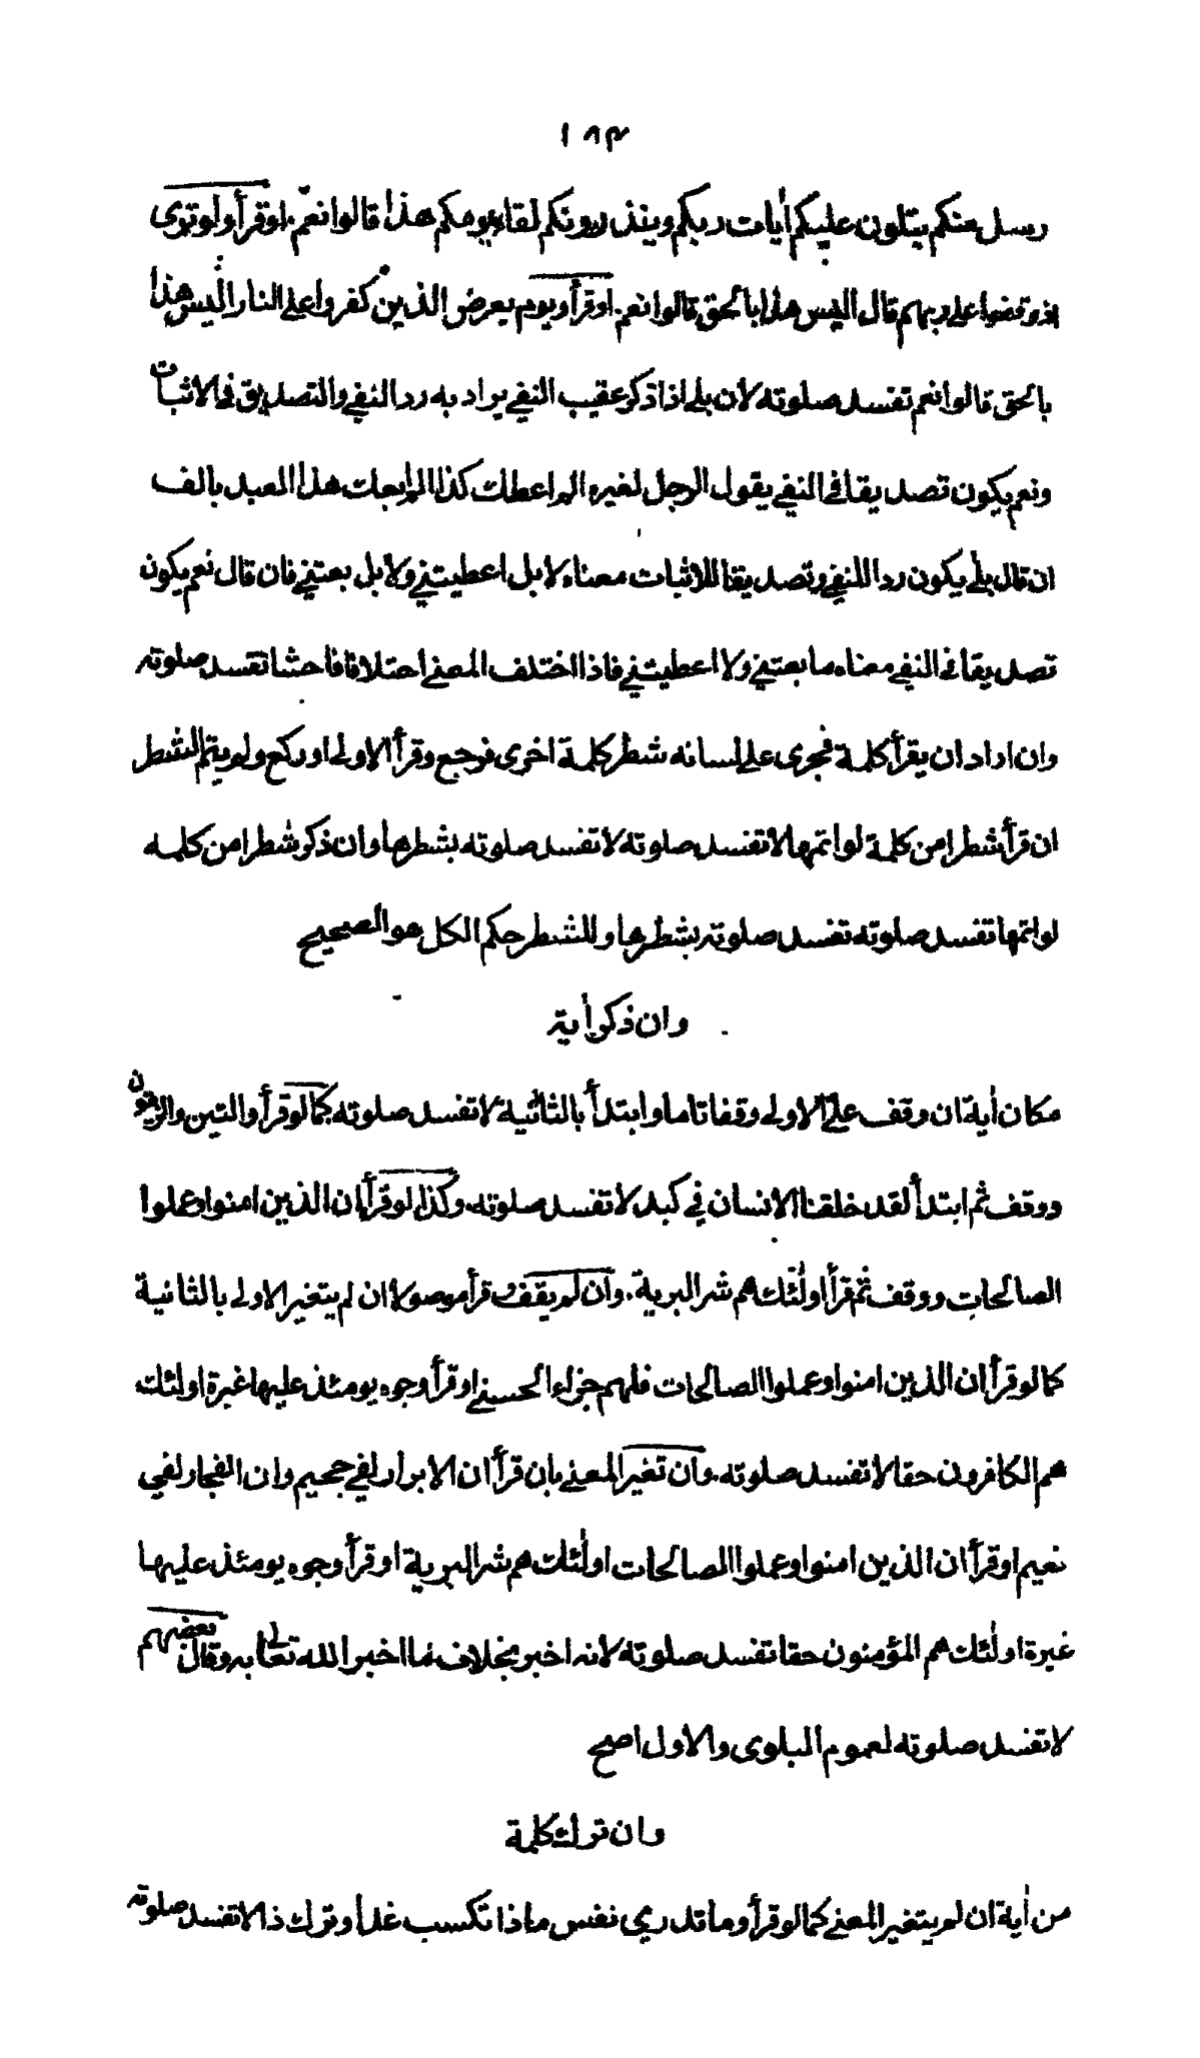 ١٨٣
رسل منكم يتلون عليكم أيات ربكم وينذرونكم لقاء يومكم هذا قالوا نعم. او قرأ ولو ترى
اذ وقفوا على ربهم قال اليس هذا بالحق قالوا نعم. او قرأ ويوم يعرض الذين كفروا على النار اليس هذا
بالحق قالوا نعم تفسد صلوته لان بلى اذا ذكر عقيب النفي يراد به رد النفي والتصديق في الاثبات
ونعم يكون تصديقا في النفي يقول الرجل لغيره الم اعطك كذا الم ابعك هذا العبد بالف
ان قال بلى يكون ردا للنفي وتصديقا للاثبات معناه لا بل اعطيتني ولا بل بعتني فان قال نعم يكون
تصديقا في النفي معناه ما بعتني ولا اعطيتني فاذا اختلف المعنى احتلافا فاحشا تفسد صلوته
وان اراد ان يقرأ كلمة فجرى على لسانه شطر كلمة اخرى فرجع وقرأ الاولى او ركع ولم يتم الشطر
ان قرأ شطرا من كلمة لو اتمها لا تفسد صلوته لا تفسد صلوته بشطرها وان ذكر شطرا من كلمه
لو اتمها تفسد صلوته تفسد صلوته بشطرها وللشطر حكم الكل هو الصحيح
وان ذكر أية
مكان أية ان وقف على الاولى وقفا تاما وابتدأ بالثانية لا تفسد صلوته كما لو قرأ والتين والزيتون
ووقف ثم ابتدأ لقد خلقنا الانسان في كبد لا تفسد صلوته. وكذا لو قرأ ان الذين امنوا وعملوا
الصالحات ووقف ثم قرأ اولئك هم شر البرية. وان لم يقف و قرأ موصولا ان لم يتغير الاولى بالثانية
كما لو قرأ ان الذين امنوا وعملوا الصالحات فلهم جزاء الحسنى او قرأ وجوه يومئذ عليها غبرة اولئك
هم الكافرون حقا لا تفسد صلوته. وان تغير المعنى بان قرأ ان الابرار لفي جحيم وان الفجار لفي
نعيم او قرأ ان الذين امنوا وعملوا الصالحات اولئك هم شر البرية او قرأ وجوه يومئذ عليها
غبرة اولئك هم المؤمنون حقا تفسد صلوته لانه اخبر بخلاف ما اخبر الله تعالى به وقال بعضهم
لا تفسد صلوته لعموم البلوى والاول اصح
وان ترك كلمة
من أية ان لم يتغير المعنى كما لو قرأ وما تدري نفس ماذا تكسب غدا وترك ذا لا تفسد صلوته